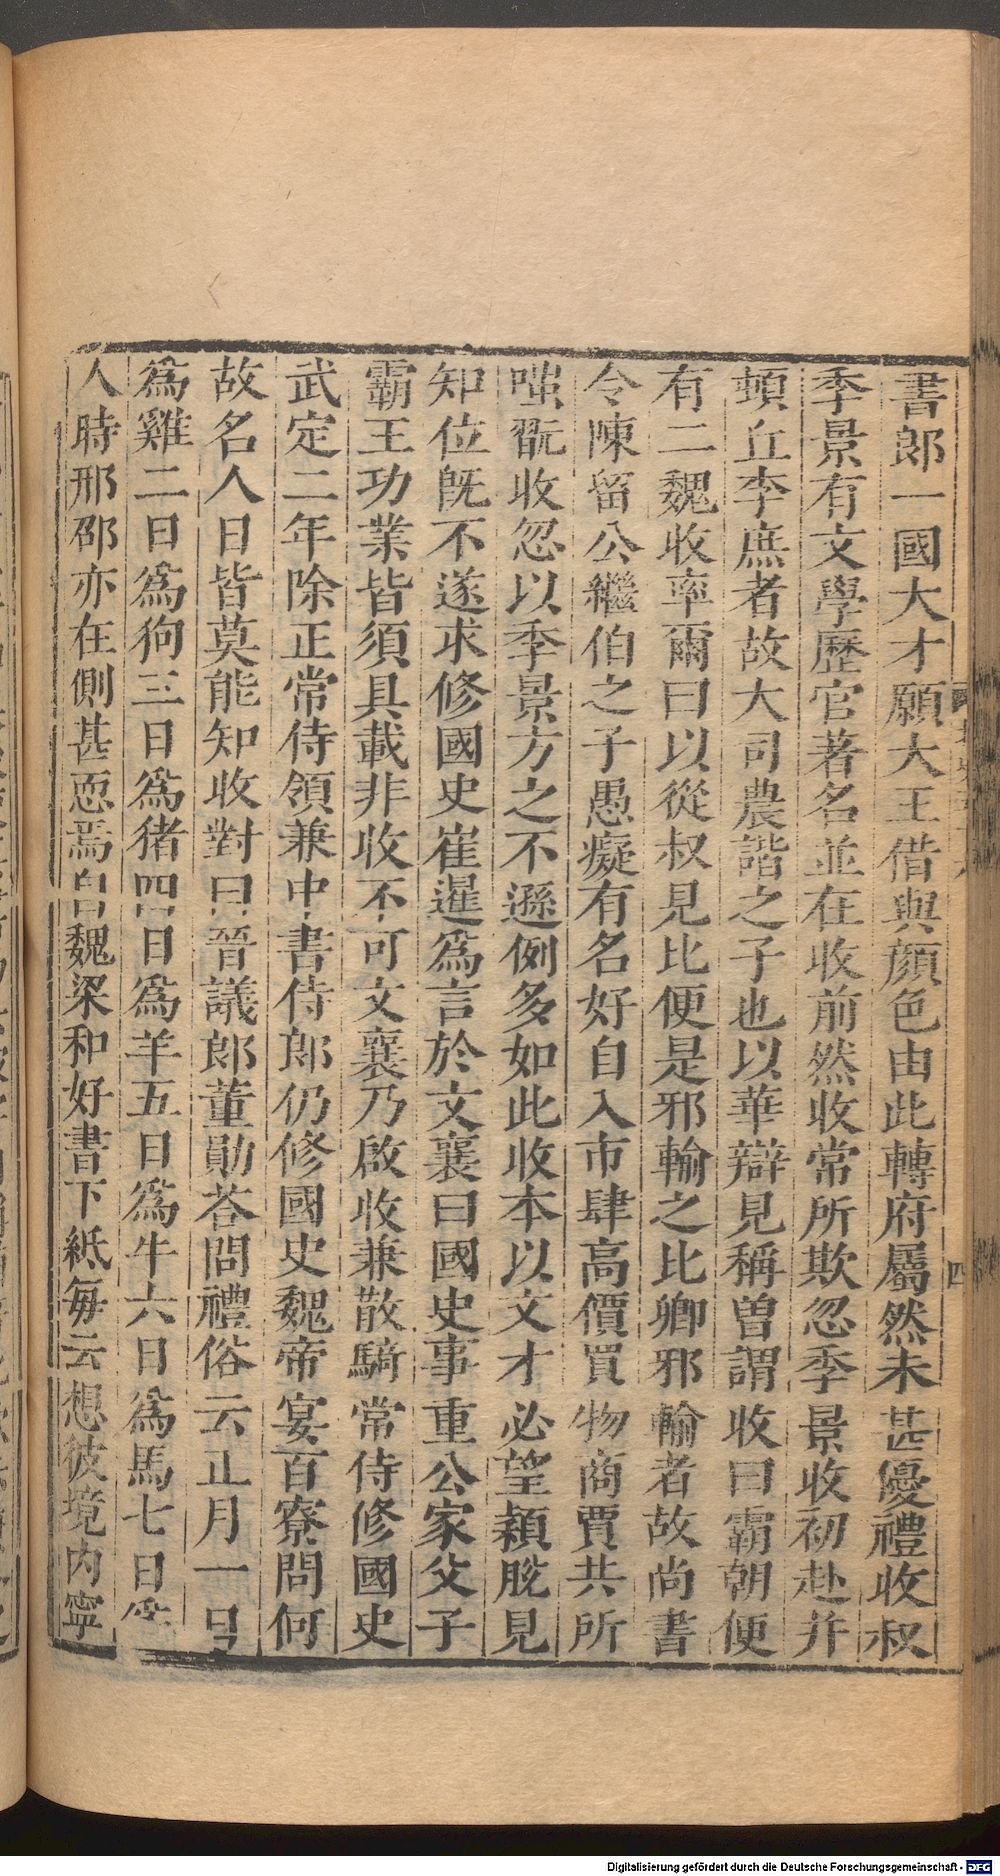 書郎一國大才願大王借與顔色由此轉府屬然未甚優禮收叔
季景有文學歷官著名並在收前然收常所欺忽季景收初赴并
頓丘李庶者故大司農諧之子也以華辯見稱曽謂收曰霸朝便
有二魏收率爾曰以從叔見比便是邪輸之比卿邪輸者故尚書
令陳留公繼伯之子愚癡有名好自入市肆高價買物商賈共所
嗤翫收忽以季景方之不遜例多如此收本以文才必望穎脫見
知位旣不遂求修國史崔暹爲言於文襄曰國史事重公家父子
霸王功業皆須具載非收不可文襄乃啟收兼散騎常侍修國史
武定二年除正常侍領兼中書侍郎仍修國史魏帝宴百寮問何
故名人日皆莫能知收對曰晉議郎董勛荅問禮俗云正月一日
爲雞二日爲狗三日爲猪四日爲羊五日爲牛六日爲馬七日爲
人時邢邵亦在側甚恧焉自魏梁和好書下紙每云想彼境内寧
四
Digitalisierung gefördert durch die Deutsche Forschungsgemeinschaft - DFG